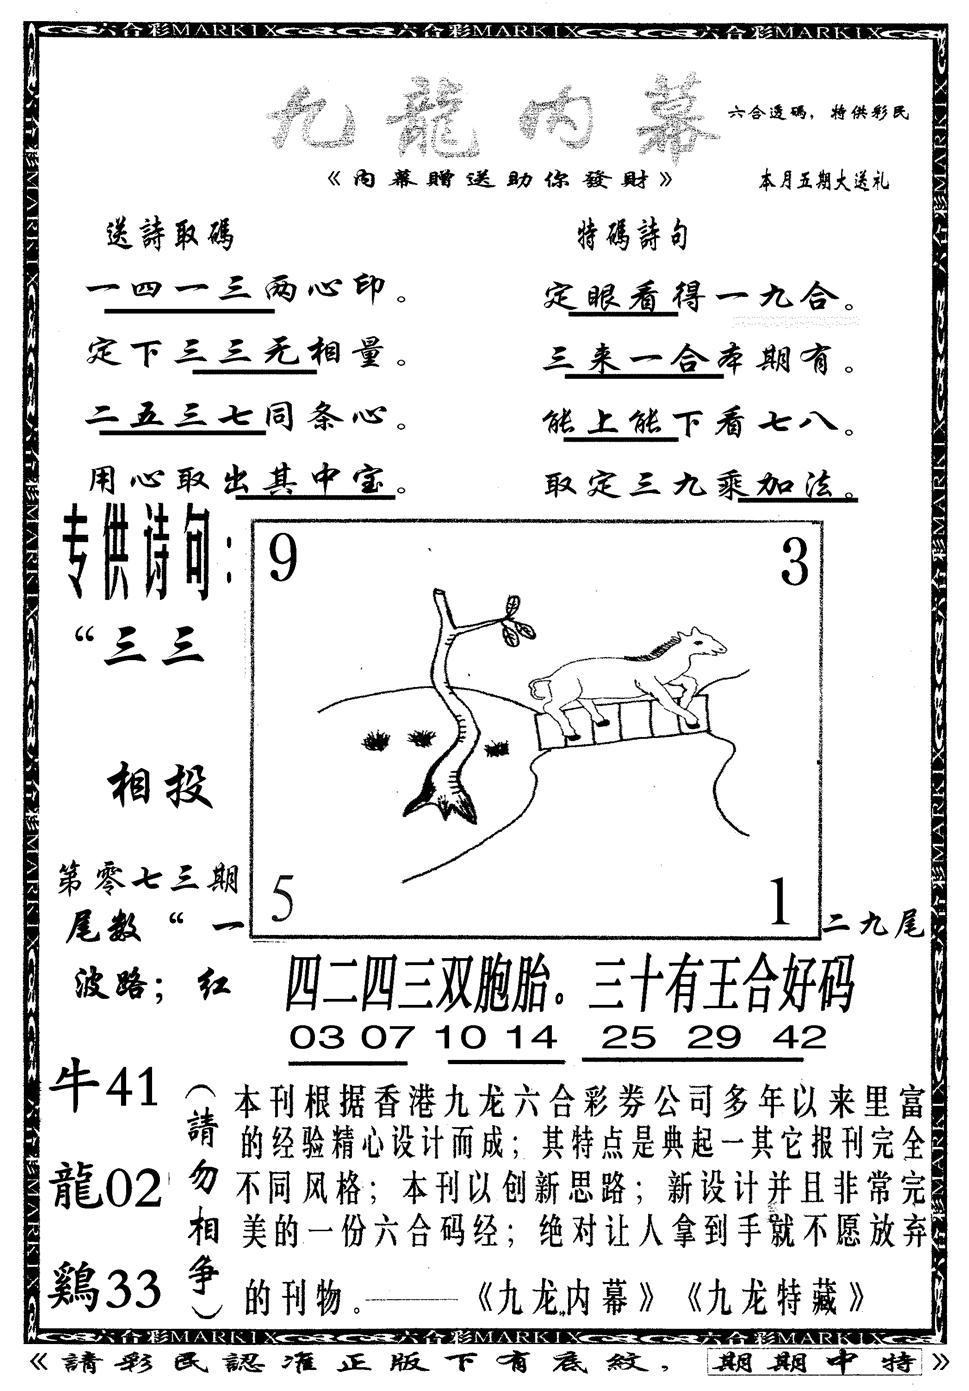 六合彩MARKIX 六合彩MARKIX 六合彩MARKIX
九龍内幕
六合透碼，特供彩民
《内幕贈送助你發財》
本月五期大送礼
送詩取碼
一四一三两心印。
定下三三无相量。
二五三七同条心。
用心取出其中宝。
特碼詩句
定眼看得一九合。
三来一合本期有。
能上能下看七八。
取定三九乘加法。
专供诗句：
“三三
相投
9
3
5
1
第零七三期
尾数“一
二九尾
波路；红
四二四三双胞胎。三十有王合好码
03 07 10 14 25 29 42
牛41
龍02
鷄33
（請勿相争）
本刊根据香港九龙六合彩券公司多年以来里富
的经验精心设计而成；其特点是典起一其它报刊完全
不同风格；本刊以创新思路；新设计并且非常完
美的一份六合码经；绝对让人拿到手就不愿放弃
的刊物。———《九龙内幕》《九龙特藏》
六合彩MARKIX 六合彩MARKIX 六合彩MARKIX
《請彩民認准正版下有底紋，期期中特》